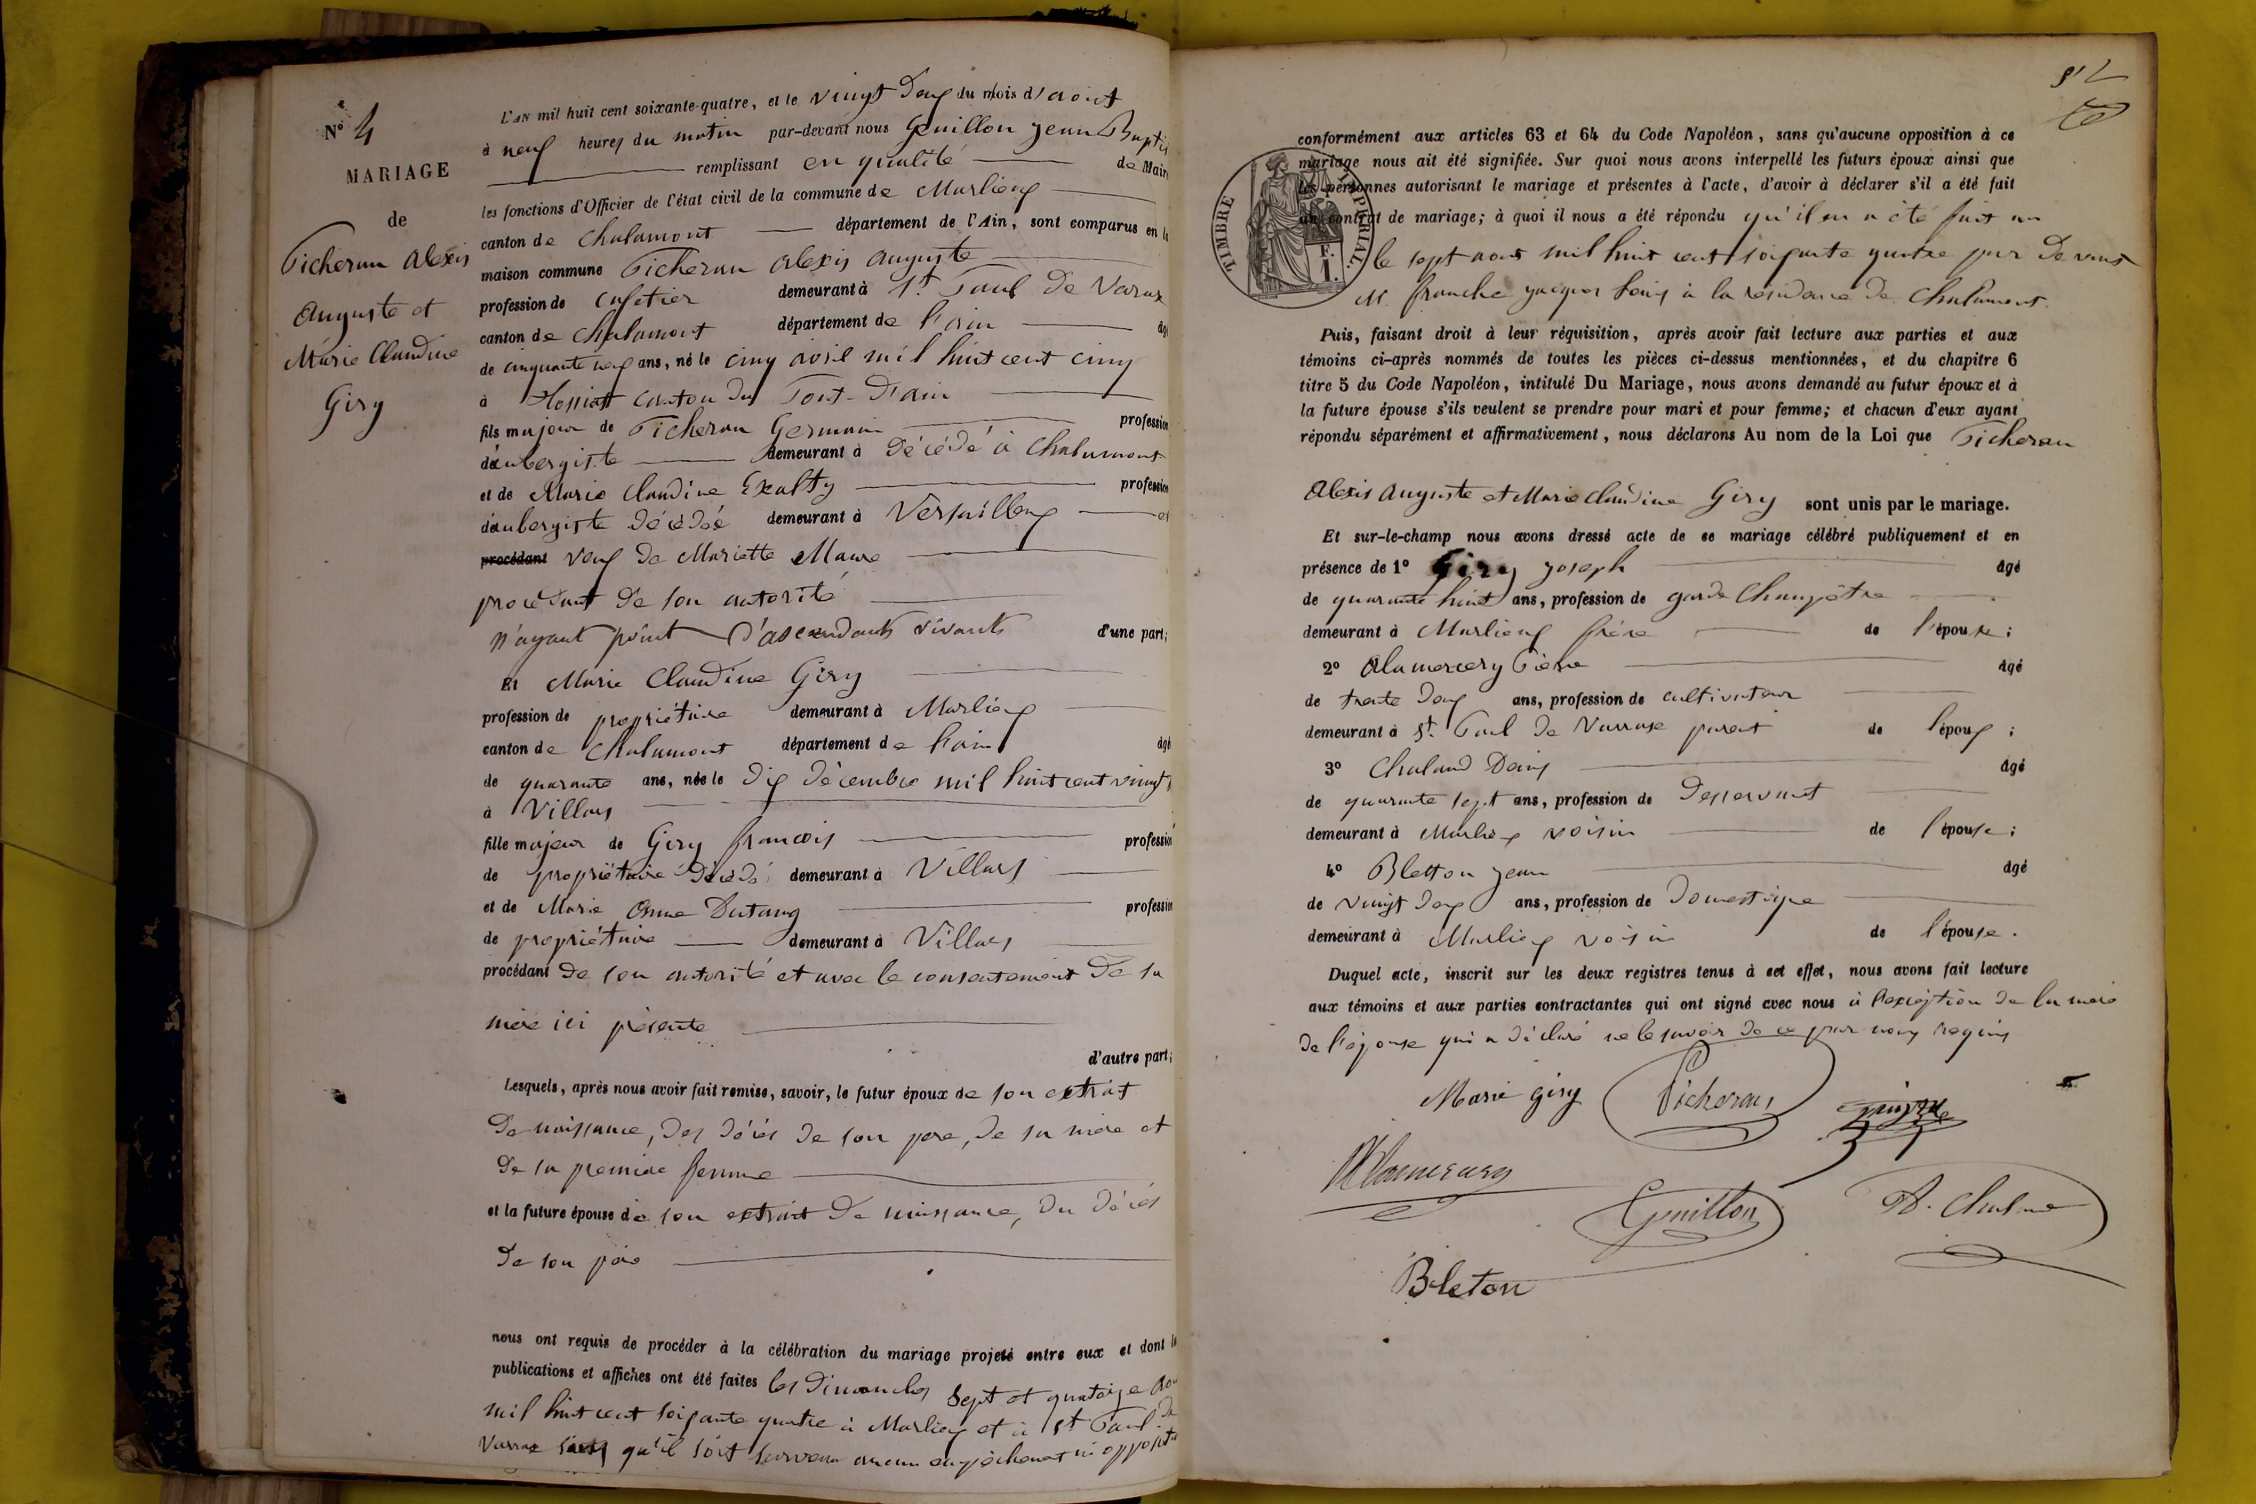 N° 4
MARIAGE
de
Picheran Alexis
Auguste et
Marie Claudine
Giry
L'AN mil huit cent soixante-quatre, et le vingt deux du mois d'aout
à neuf heures du matin par-devant nous Genillon Jean Baptis
remplissant en qualité de Maire
les fonctions d'Officier de l'état civil de la commune de Marlieux
canton de Chalamont département de l'Ain, sont comparus en la
maison commune Picheran Alexis Auguste
profession de cafetier demeurant à St Paul de Varax
canton de Chalamont département de l'ain âgé
de cinquante neuf ans, né le cinq avril mil huit cent cinq
à canton du Pont-d'ain
fils majeur de Picheran Germain profession
d'aubergiste demeurant à décédé à Chalamont
et de Marie Claudine profession
d'aubergiste décédée demeurant à Versailleux et
procédant veuf de Mariette
procédant de son autorité
n'ayant point d'ascendants vivants d'une part;
Et Marie Claudine Giry
profession de propriétaire demeurant à Marlieux
canton de Chalamont département de l'ain âgé
de quarante ans, née le dix décembre mil huit cent vingt
à Villars
fille majeur de Giry françois profession
de propriétaire décédé demeurant à Villars
et de Marie Anne Dutang profession
de propriétaire demeurant à Villars
procédant de son autorité et avec le consentement de sa
mère ici présente
d'autre part;
Lesquels, après nous avoir fait remise, savoir, le futur époux de son extrait
de naissance, des décès de son pere, de sa mère et
de sa premiere femme
et la future épouse de son extrait de naissance, du décès
de son père
nous ont requis de procéder à la célébration du mariage projeté entre eux et dont les
publications et affiches ont été faites les dimanches sept et quatorze aou
mil huit cent soixante quatre à Marlieux et à St Paul de
Varax sans qu'il soit survenu aucun empêchement ni opposition
conformément aux articles 63 et 64 du Code Napoléon, sans qu'aucune opposition à ce
mariage nous ait été signifiée. Sur quoi nous avons interpellé les futurs époux ainsi que
les personnes autorisant le mariage et présentes à l'acte, d'avoir à déclarer s'il a été fait
un contrat de mariage; à quoi il nous a été répondu qu'il en a été fait un
le sept aout mil huit cent soixante quatre par devant
M. franche jacques à la résidence de Chalamont
TIMBRE IMPERIAL.
F. I.
Puis, faisant droit à leur réquisition, après avoir fait lecture aux parties et aux
témoins ci-après nommés de toutes les pièces ci-dessus mentionnées, et du chapitre 6
titre 5 du Code Napoléon, intitulé Du Mariage, nous avons demandé au futur époux et à
la future épouse s'ils veulent se prendre pour mari et pour femme; et chacun d'eux ayant
répondu séparément et affirmativement, nous déclarons Au nom de la Loi que Picheran
Alexis Auguste et Marie Claudine Giry sont unis par le mariage.
Et sur-le-champ nous avons dressé acte de ce mariage célébré publiquement et en
présence de 1° Giry joseph âgé
de quarante huit ans, profession de garde Champêtre
demeurant à Marlieux frère de l'épouse;
2° Alamercery Pierre âgé
de trente deux ans, profession de cultivateur
demeurant à St Paul de Varrax parent de l'époux;
3° Chaland Denis âgé
de quarante sept ans, profession de Desservant
demeurant à Marlieux voisin de l'épouse;
4° Bletton Jean âgé
de vingt deux ans, profession de Domestique
demeurant à Marlieux voisin de l'épouse.
Duquel acte, inscrit sur les deux registres tenus à cet effet, nous avons fait lecture
aux témoins et aux parties contractantes qui ont signé avec nous à l'exception de la mère
de l'épouse qui a déclaré ne le savoir de ce par nous requis
Marie giry Picheran
Alamercery
Genillon
Bleton